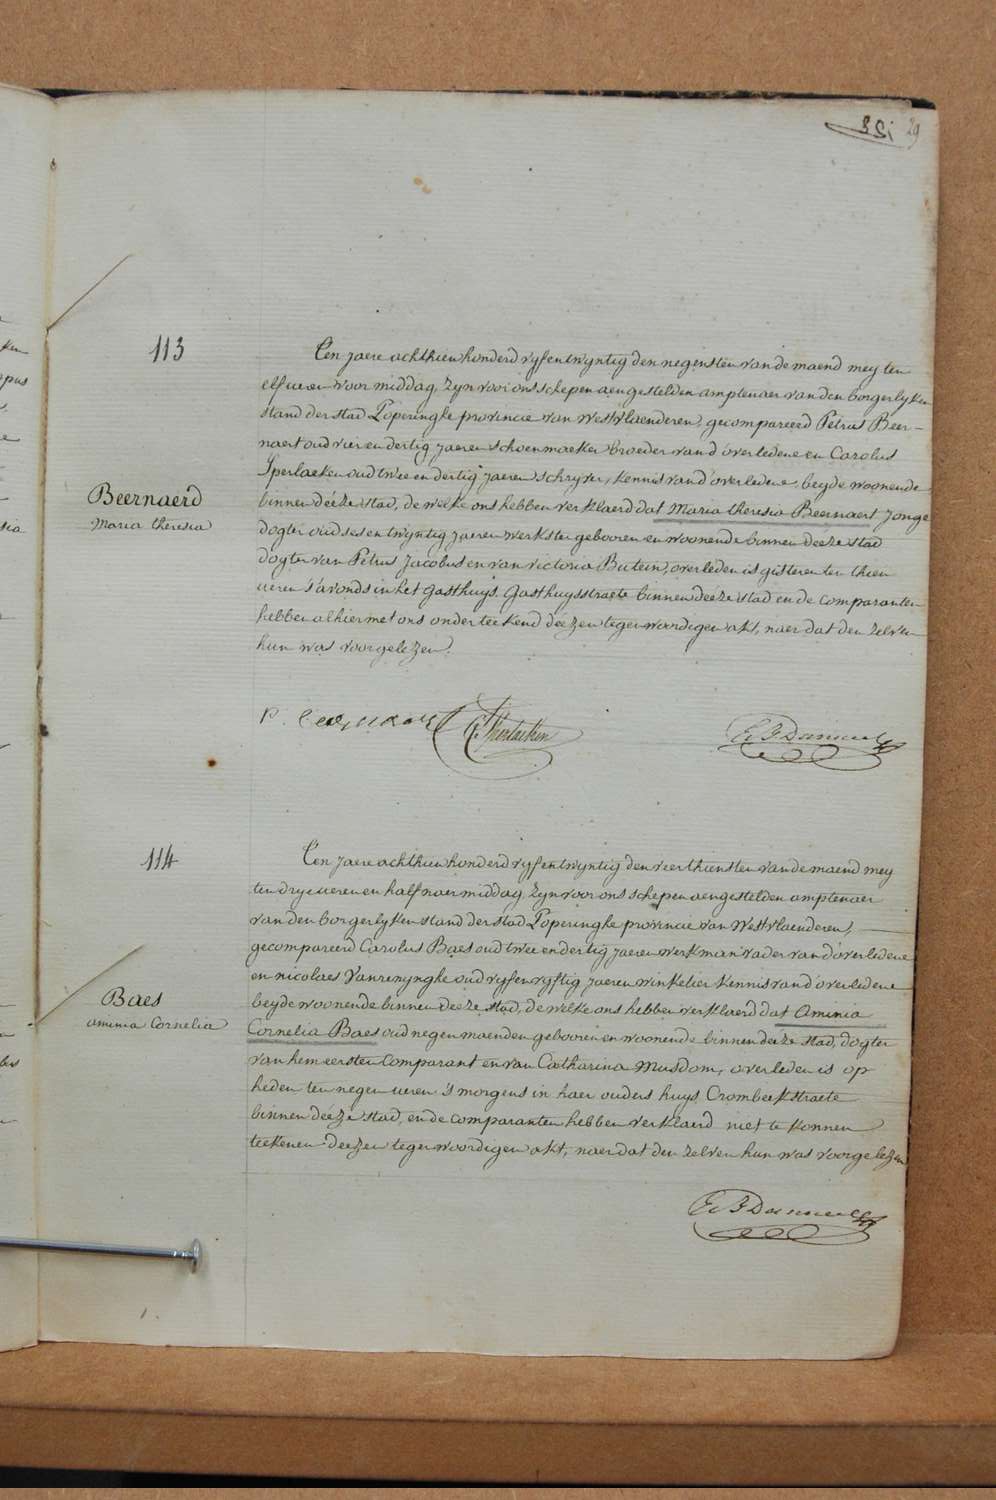 29
113
Een jaere achthien honderd vyf en twyntig den negensten van de maend mey ten
elf ueren voor middag, zyn voor ons schepen aengestelden amptenaer van den borgerlyken
stand der stad Poperinghe provincie van Westvlaenderen, gecompareerd Petrus Beer-
naert oud vier en dertig jaeren schoenmaeker broeder van d'overledene en Carolus
Sperlaeken oud twee en dertig jaeren schryver, kennis van d'overledene, beyde woonende
Beernaerd
Maria theresia
binnen deéze stad, de welke ons hebben verklaerd dat Maria theresia Beernaert jonge
dogter oud ses en twyntig jaeren werkster gebooren en woonende binnen deeze stad
dogter van Petrus Jacobus en van victoria Butein, overleden is gisteren ten thien
ueren s'avonds in het gasthuys, Gasthuysstraete binnen deeze stad en de comparanten
hebben alhier met ons onderteekend deezen tegenwoordigen akt, naer dat den zelven
hun was voorgelezen.
P.
114
Een jaere achthien honderd vyf en twyntig den vierthiensten van de maend mey
ten dry ueren en half naer middag, zyn voor ons schepen aengestelden amptenaer
van den borgerlyken stand der stad Poperinghe provincie van Westvlaenderen,
gecompareerd Carolus Baes oud twee en dertig jaeren werkman vader van d'overledene
en nicolaes Vanrenynghe oud vyf en vyftig jaeren winkelier kennis van d'overledene
Baes
aminia Cornelia
beyde woonende binnen deeze stad, de welke ons hebben verklaerd dat Aminia
Cornelia Baes oud negen maenden gebooren en woonende binnen deeze stad, dogter
van hem eersten Comparant en van Catharina Musdom, overleden is op
heden ten negen ueren 's morgens in haer ouders huys Crombeekstraete
binnen deeze stad, en de comparanten hebben verklaerd niet te konnen
teekenen deezen tegenwoordigen akt, naer dat den zelven hun was voorgelezen